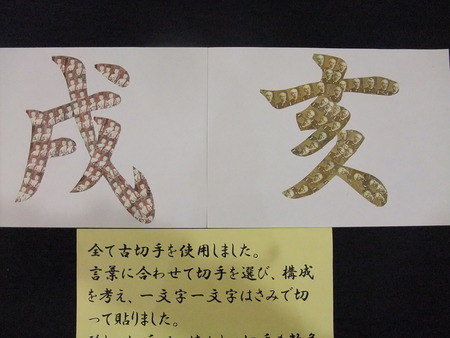 戌 亥
全て古切手を使用しました。
言葉に合わせて切手を選び、構成
を考え、一文字一文字はさみで切
って貼りました。